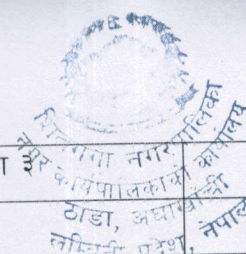 शितगंगा नगरपालिका
नगर कार्यपालिकाको कार्यालय
ठाडा, अर्घाखाँची
लुम्बिनी प्रदेश, नेपाल
३